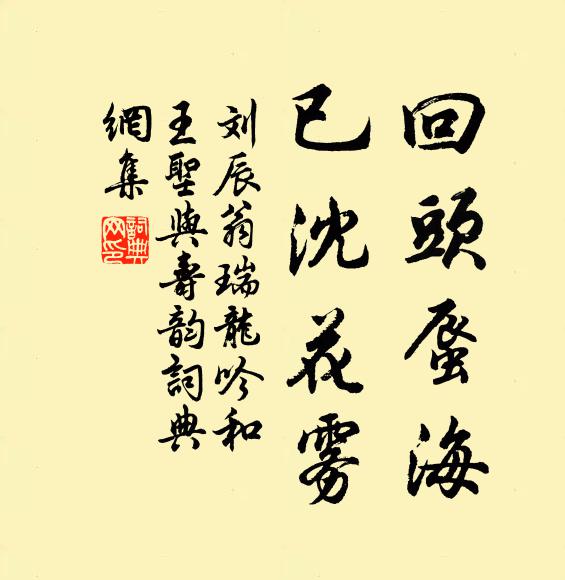 回頭蜃海
已沈花雾
刘辰翁瑞龍吟和
王聖與壽韵詞典
網集
詞典
网印